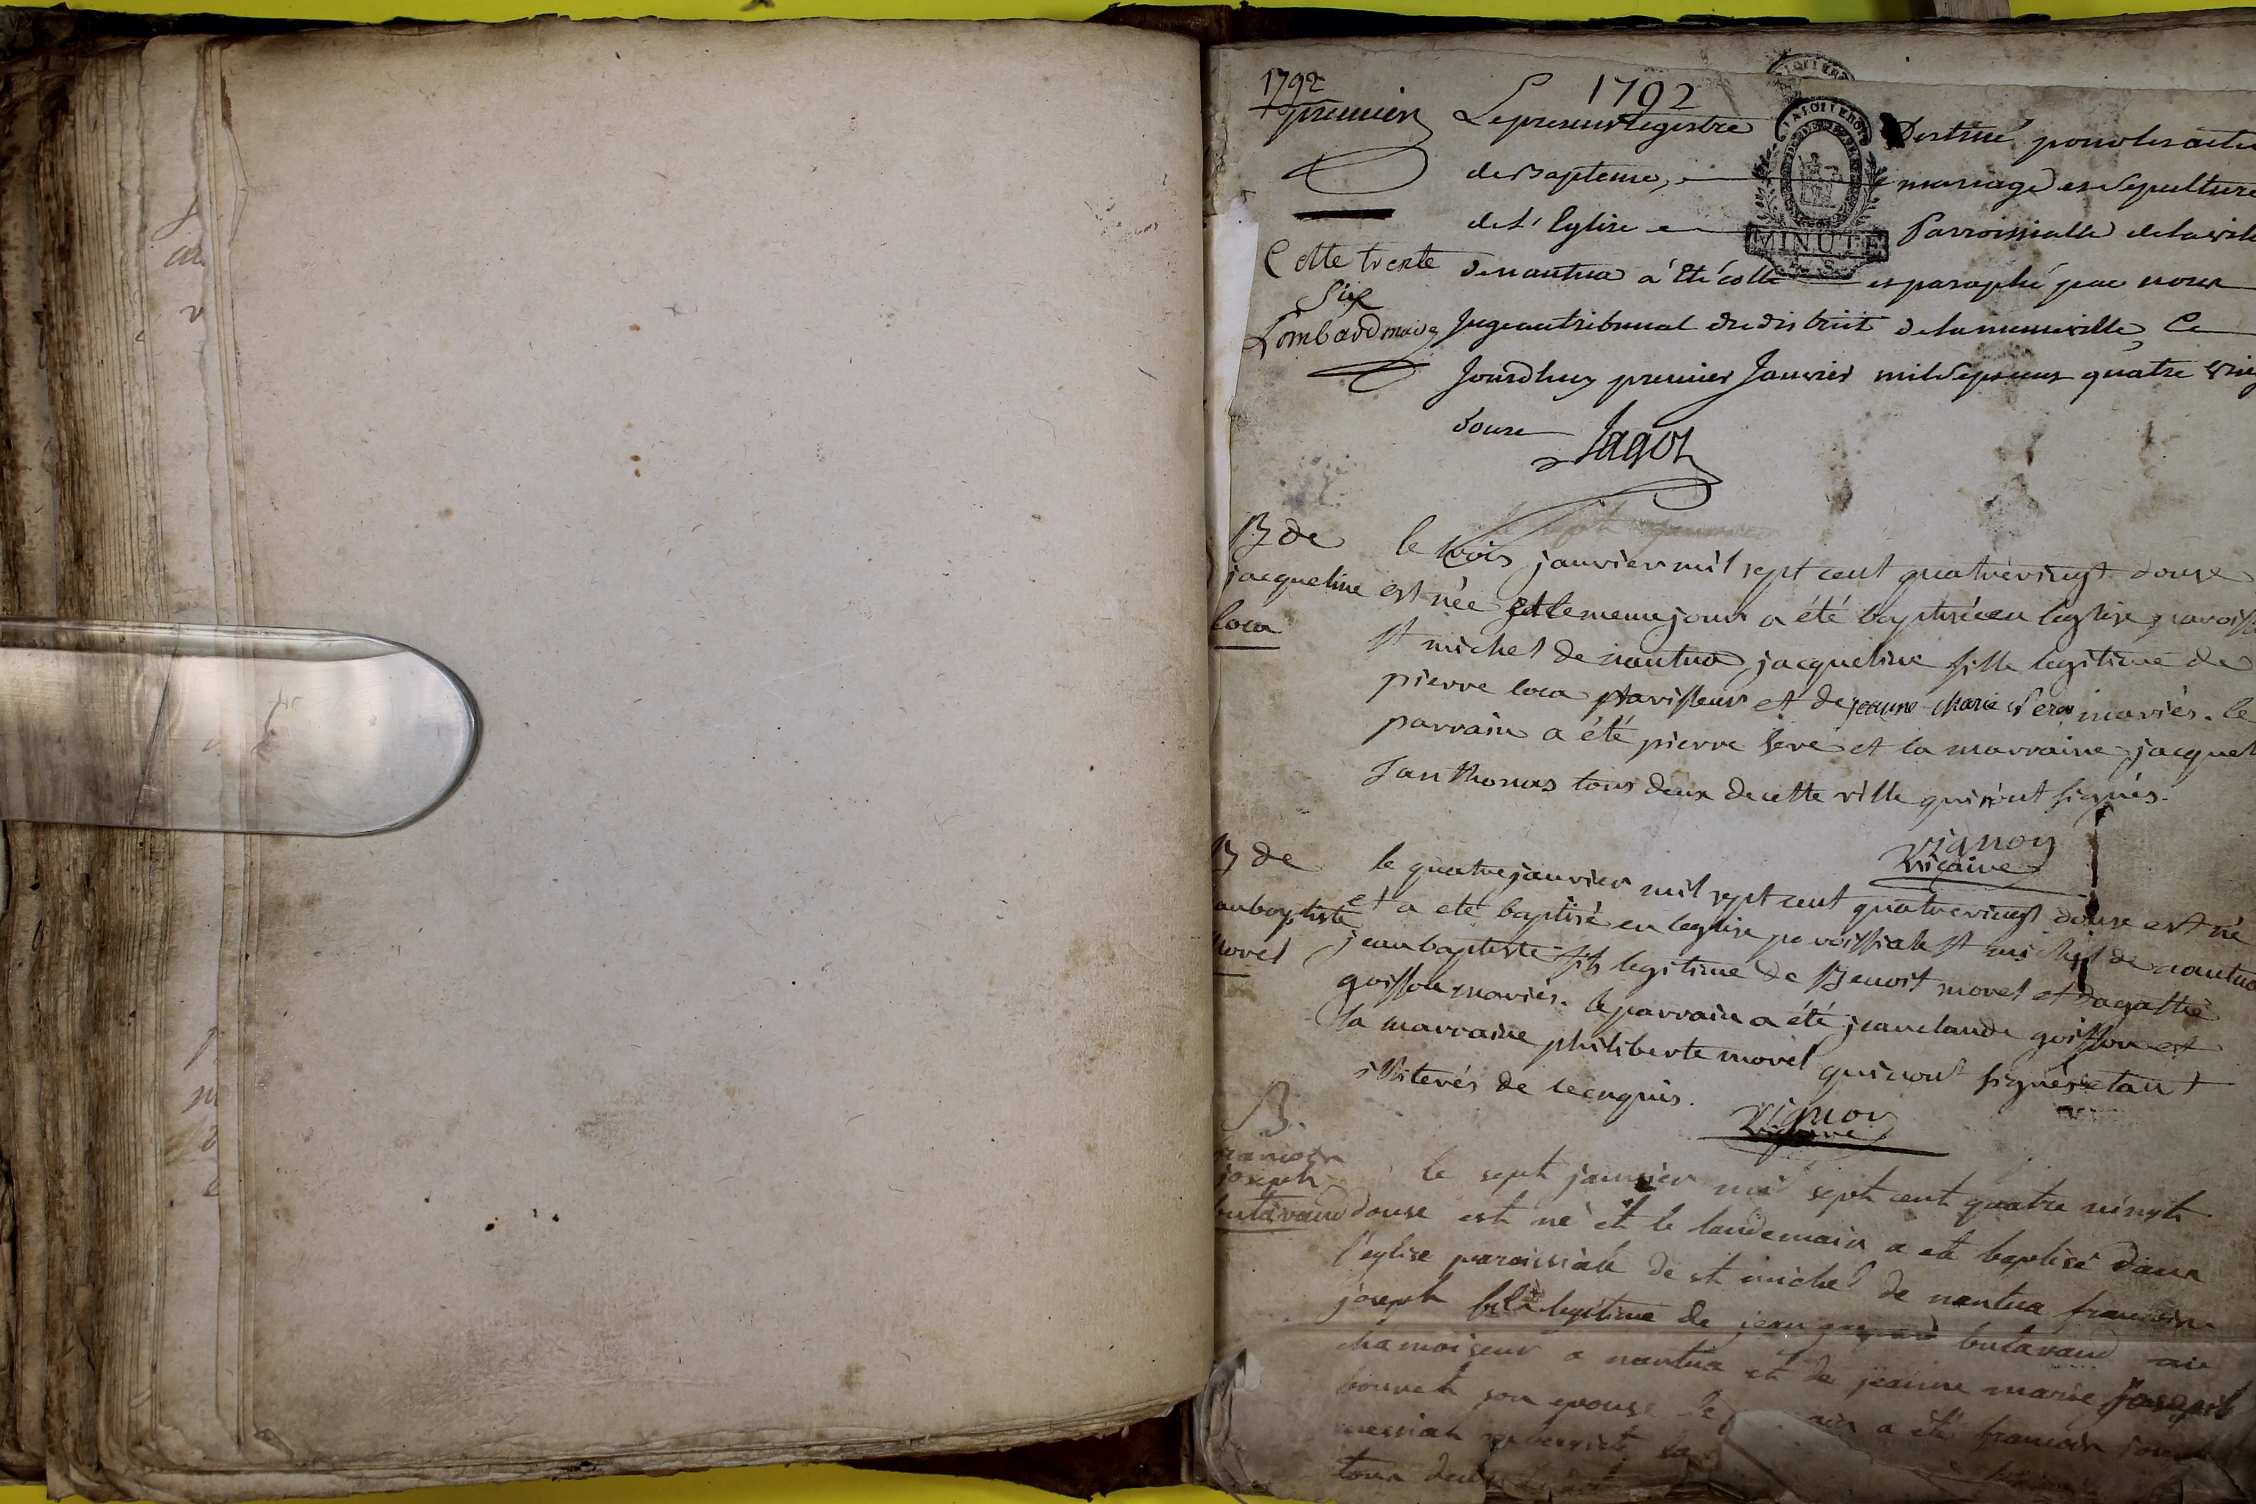 1792
1792
premier
Le present registre Destiné pour les acte
de Bapteme, mariage et Sepulture
de L'Eglise Parroissialle de la vil
MINUTE
Cotte trente
Six
de nantua a été cotté et paraphé par nous
Lombard maire
Juge au tribunal du district de la meme ville, Ce
Jourdhuy premier Janvier mil Sept cens quatre vingt
douze
Jagot
B de
jacqueline
loca
le trois janvier mil sept cent quatrevingt douze
est née et le meme jour a été baptisée en leglise paroiss
st michel de nantua, jacqueline fille legitime de
pierre loca et de jeanne Marie mariés. le
parrain a été pierre et la marraine jacquel
Janthomas tous deux de cette ville qui n'ont signés.
vignon
vicaire
B de
anbaptiste
morel
le quatre janvier mil sept cent quatrevingt douze est né
et a eté baptisé en leglise paroissiale st michel de nantua
jean baptiste fils legitime de Benoit morel et dagathe
goiffon mariés. le parrain a été jean claude goiffon et
la marraine philiberte morel qui n'ont signés etant
illiterés de ce enquis.
vignon
vicaire
B.
francois
joseph
butavand
le sept janvier mil sept cent quatre vingt
douse est né et le landemain a eté baptisé dans
l'eglise paroissiale de st michel de nantua francois
joseph fils legitime de jean butavand
chamoiseur a nantua et de jeanne marie
son epouse le a été francois joseph
tous deux